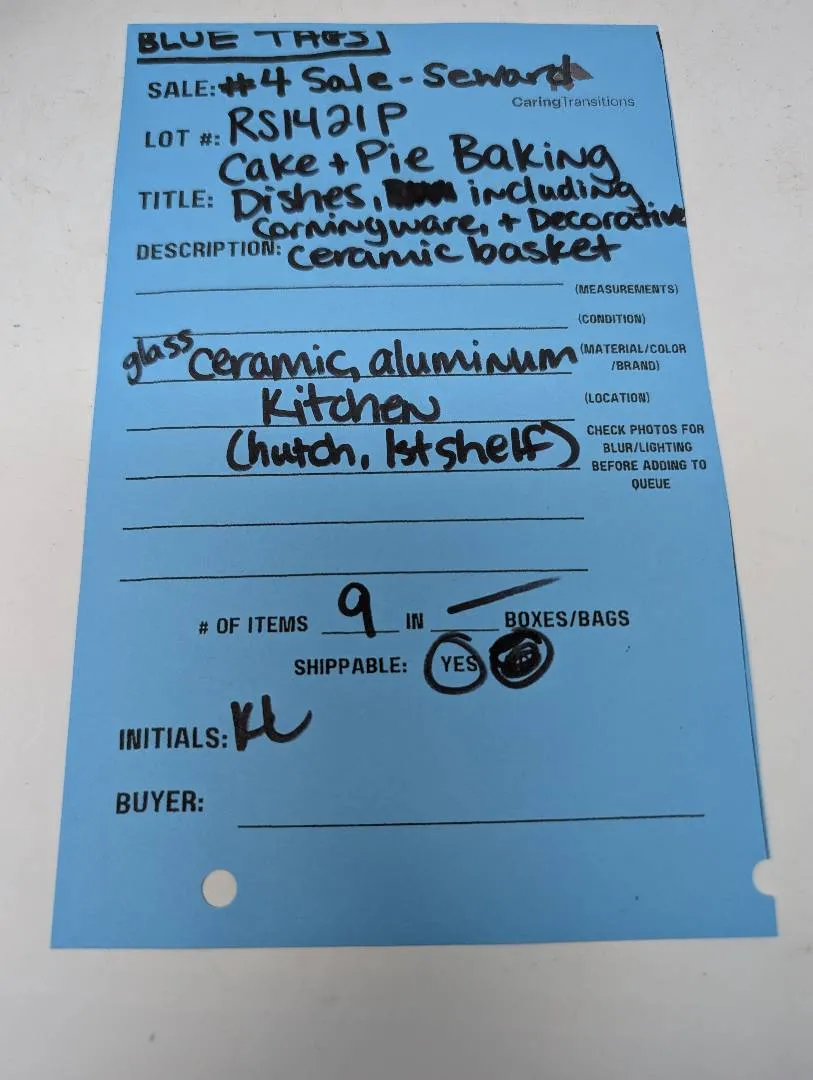 BLUE TAGS
SALE: #4 Sale - Seward
CaringTransitions
LOT #: RS1421P
Cake + Pie Baking
TITLE: Dishes, including
Corningware, + Decorative
DESCRIPTION: ceramic basket
(MEASUREMENTS)
(CONDITION)
glass ceramic, aluminum (MATERIAL/COLOR
/BRAND)
Kitchen (LOCATION)
(hutch, 1st shelf) CHECK PHOTOS FOR
BLUR/LIGHTING
BEFORE ADDING TO
QUEUE
# OF ITEMS 9 IN — BOXES/BAGS
SHIPPABLE: YES
INITIALS: KL
BUYER: